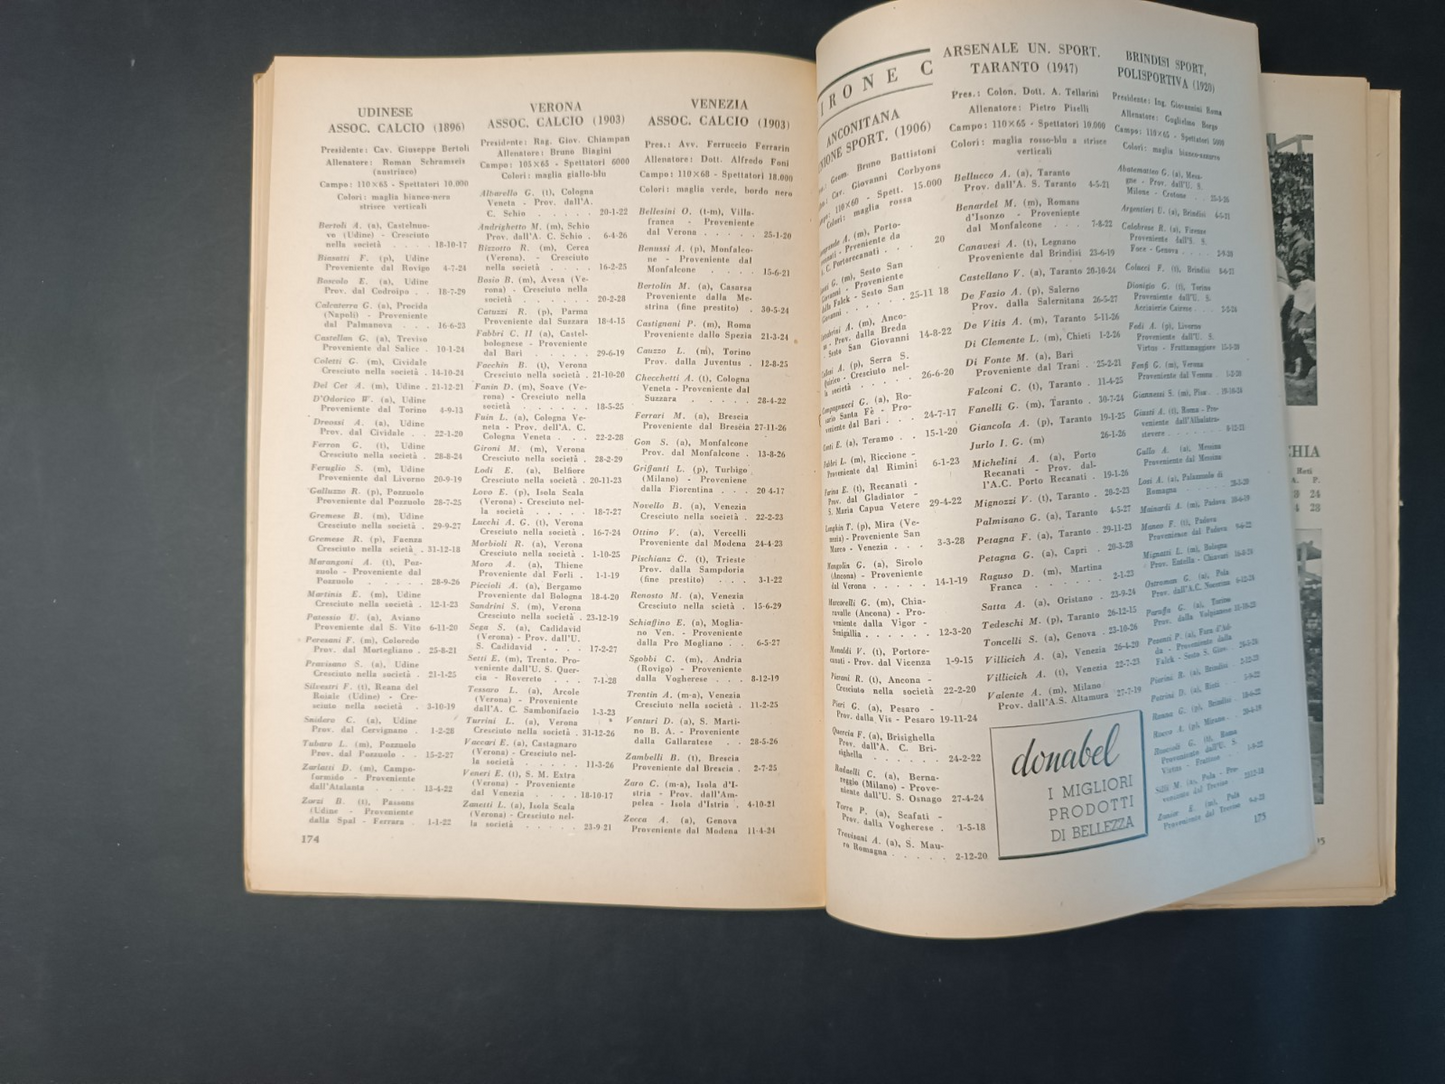 UDINESE
ASSOC. CALCIO (1896)
Presidente: Cav. Giuseppe Bertoli
Allenatore: Roman Schramseis
(austriaco)
Campo: 110×65 - Spettatori 10.000
Colori: maglia bianco-nera
strisce verticali
Bertoli A. (a), Castelnuo-
vo (Udine) - Cresciuto
nella società . . . 18-10-17
Biasatti F. (p), Udine
Proveniente dal Rovigo 4-7-24
Boscolo E. (a), Udine
Prov. dal Codroipo . . 18-7-29
Calcaterra G. (a), Procida
(Napoli) - Proveniente
dal Palmanova . . . 16-6-23
Castellan G. (a), Treviso
Proveniente dal Salice . 10-1-24
Coletti G. (m), Cividale
Cresciuto nella società . 14-10-24
Dal Cet A. (m), Udine . 21-12-21
D'Odorico W. (a), Udine
Proveniente dal Torino 4-9-13
Dreossi A. (a), Udine
Prov. dal Cividale . . 22-1-20
Ferron G. (t), Udine
Cresciuto nella società . 28-8-24
Feruglio S. (m), Udine
Proveniente dal Livorno 20-9-19
Galluzzo R. (p), Pozzuolo
Proveniente dal Pozzuolo 28-7-25
Gremese B. (m), Udine
Cresciuto nella società . 29-9-27
Gremese R. (p), Faenza
Cresciuto nella scietà . . 31-12-18
Marangoni A. (t), Poz-
zuolo - Proveniente dal
Pozzuolo . . . . . 28-9-26
Martinis E. (m), Udine
Cresciuto nella società . 12-1-23
Patessio U. (a), Aviano
Proveniente dal S. Vito 6-11-20
Peressoni F. (m), Coloredo
Prov. dal Mortegliano . 25-8-21
Pravisano S. (a), Udine
Cresciuto nella società . 21-1-25
Silvestri F. (t), Reana del
Roiale (Udine) - Cre-
sciuto nella società . . 3-10-19
Snidero C. (a), Udine
Prov. dal Cervignano . 1-2-28
Tubaro L. (m), Pozzuolo
Prov. dal Pozzuolo . . 15-2-27
Zarlatti D. (m), Campo-
formido - Proveniente
dall'Atalanta . . . . 13-4-22
Zorzi B. (t), Passons
(Udine - Proveniente
dalla Spal - Ferrara . 1-1-22
174
VERONA
ASSOC. CALCIO (1903)
Presidente: Rag. Giov. Chiampan
Allenatore: Bruno Biagini
Campo: 105×65 - Spettatori 6000
Colori: maglia giallo-blu
Albarello G. (t), Cologna
Veneta - Prov. dall'A.
C. Schio . . . . . 20-1-22
Andrighetto M. (m), Schio
Prov. dall'A. C. Schio . 6-4-26
Bizzotto R. (m), Cerea
(Verona). - Cresciuto
nella società . . . . 16-2-25
Bosio B. (m), Avesa (Ve-
rona) - Cresciuto nella
società . . . . . . 20-2-28
Catuzzi R. (p), Parma
Proveniente dal Suzzara 18-4-15
Fabbri C. II (a), Castel-
bolognese - Proveniente
dal Bari . . . . . 29-6-19
Facchin B. (t), Verona
Cresciuto nella società . 21-10-20
Fanin D. (m), Soave (Ve-
rona) - Cresciuto nella
società . . . . . . 18-5-25
Fuin L. (a), Cologna Ve-
neta - Prov. dell'A. C.
Cologna Veneta . . . 22-2-28
Gironi M. (m), Verona
Cresciuto nella società . 28-2-29
Lodi E. (a), Belfiore
Cresciuto nella società . 20-11-23
Lovo E. (p), Isola Scala
(Verona) - Cresciuto nel-
la società . . . . . 18-7-27
Lucchi A. G. (t), Verona
Cresciuto nella società . 16-7-24
Morbioli R. (a), Verona
Cresciuto nella società . 1-10-25
Moro A. (a), Thiene
Proveniente dal Forlì . 1-1-19
Piccioli A. (a), Bergamo
Proveniente dal Bologna 18-4-20
Sandrini S. (m), Verona
Cresciuto nella società . 23-12-19
Sega S. (a), Cadidavid
(Verona) - Prov. dall'U.
S. Cadidavid . . . . 17-2-27
Setti E. (m), Trento. Pro-
veniente dall'U. S. Quer-
cia - Rovereto . . . 7-1-28
Tessaro L. (a), Arcole
(Verona) - Proveniente
dall'A. C. Sambonifacio 1-3-23
Turrini L. (a), Verona
Cresciuto nella società . 31-12-26
Vaccari E. (a), Castagnaro
(Verona) - Cresciuto nel-
la società . . . . . 11-3-26
Veneri E. (t), S. M. Extra
(Verona) - Proveniente
dal Venezia . . . . 18-10-17
Zanetti L. (a), Isola Scala
(Verona) - Cresciuto nel-
la società . . . . . 23-9-21
VENEZIA
ASSOC. CALCIO (1903)
Pres.: Avv. Ferruccio Ferrarin
Allenatore: Dott. Alfredo Foni
Campo: 110×68 - Spettatori 18.000
Colori: maglia verde, bordo nero
Bellesini O. (t-m), Villa-
franca - Proveniente
dal Verona . . . . . 25-1-20
Bonussi A. (p), Monfalco-
ne - Proveniente dal
Monfalcone . . . . 15-6-21
Bertolin M. (a), Casarsa
Proveniente dalla Me-
strina (fine prestito) . 30-5-24
Castignani P. (m), Roma
Proveniente dallo Spezia 21-3-24
Cauzzo L. (m), Torino
Prov. dalla Juventus . 12-8-25
Checchetti A. (t), Cologna
Veneta - Proveniente dal
Suzzara . . . . . 28-4-22
Ferrari M. (a), Brescia
Proveniente dal Brescia 27-11-26
Gon S. (a), Monfalcone
Prov. dal Monfalcone . 13-8-26
Griffanti L. (p), Turbigo
(Milano) - Proveniene
dalla Fiorentina . . . 20 4-17
Novello B. (a), Venezia
Cresciuto nella società . 22-2-23
Ottino V. (a), Vercelli
Proveniente dal Modena 24-4-23
Pischianz C. (t), Trieste
Prov. dalla Sampdoria
(fine prestito) . . . 3-1-22
Renosto M. (a), Venezia
Cresciuto nella scietà . 15-6-29
Schiaffino E. (a), Moglia-
no Ven. - Proveniente
dalla Pro Mogliano . . 6-5-27
Sgobbi C. (m), Andria
(Rovigo) - Proveniente
dalla Vogherese . . . 8-12-19
Trentin A. (m-a), Venezia
Cresciuto nella società . 11-2-25
Venturi D. (a), S. Marti-
no B. A. - Proveniente
dalla Gallaratese . . 28-5-26
Zambelli B. (t), Brescia
Proveniente dal Brescia . 2-7-25
Zaro C. (m-a), Isola d'I-
stria - Prov. dall'Am-
pelea - Isola d'Istria . 4-10-21
Zecca A. (a), Genova
Proveniente dal Modena 11-4-24
IRONE C
ANCONITANA
NIONE SPORT. (1906)
Geom. Bruno Battistoni
Cav. Giovanni Corbyons
110×60 - Spett. 15.000
Colori: maglia rossa
A. (m), Porto-
- Prveniente da
A. C. Portorecanati . . 20
G. (m), Sesto San
Giovanni - Proveniente
dalla Falck - Sesto San
Giovanni . . . . . 25-11 18
A. (m), Anco-
- Prov. dalla Breda
Sesto San Giovanni 14-8-22
A. (p), Serra S.
Quirico - Cresciuto nel-
la società . . . . . 26-6-20
Campagnacci G. (a), Ro-
sario Santa Fè - Pro-
veniente dal Bari . . . 24-7-17
Conti E. (a), Teramo . . 15-1-20
Fabbri L. (m), Riccione -
Proveniente dal Rimini 6-1-23
Farina E. (t), Recanati -
Prov. dal Gladiator -
S. Maria Capua Vetere 29-4-22
Longhin T. (p), Mira (Ve-
nezia) - Proveniente San
Marco - Venezia . . . 3-3-28
Mengolin G. (a), Sirolo
(Ancona) - Proveniente
dal Verona . . . . . 14-1-19
Marcorelli G. (m), Chia-
ravalle (Ancona) - Pro-
veniente dalla Vigor -
Senigallia . . . . . . 12-3-20
Monaldi V. (t), Portore-
canati - Prov. dal Vicenza 1-9-15
Pieroni R. (t), Ancona -
Cresciuto nella società 22-2-20
Pieri G. (a), Pesaro -
Prov. dalla Vis - Pesaro 19-11-24
Quercia F. (a), Brisighella
Prov. dall'A. C. Bri-
sighella . . . . . . 24-2-22
Radaelli C. (a), Berna-
reggio (Milano) - Prove-
niente dall'U. S. Osnago 27-4-24
Torre P. (a), Scafati -
Prov. dalla Vogherese . 1-5-18
Trevisani A. (a), S. Mau-
ro Romagna . . . . . 2-12-20
ARSENALE UN. SPORT.
TARANTO (1947)
Pres.: Colon. Dott. A. Tellarini
Allenatore: Pietro Piselli
Campo: 110×65 - Spettatori 10.000
Colori: maglia rosso-blu a strisce
verticali
Bellucco A. (a), Taranto
Prov. dall'A. S. Taranto 4-5-21
Benardel M. (m), Romans
d'Isonzo - Proveniente
dal Monfalcone . . . 7-8-22
Canavesi A. (t), Legnano
Proveniente dal Brindisi 23-6-19
Castellano V. (a), Taranto 20-10-24
De Fazio A. (p), Salerno
Prov. dalla Salernitana 26-5-27
De Vitis A. (m), Taranto 5-11-26
Di Clemente L. (m), Chieti 1-2-26
Di Fonte M. (a), Bari
Proveniente dal Trani . 25-2-21
Falconi C. (t), Taranto . 11-4-25
Fanelli G. (m), Taranto . 30-7-24
Giancola A. (p), Taranto 19-1-25
Jurlo I. G. (m) 26-1-26
Michelini A. (a), Porto
Recanati - Prov. dal-
l'A.C. Porto Recanati . 19-1-26
Mignozzi V. (t), Taranto . 20-2-23
Palmisano G. (a), Taranto 4-5-27
Petagna F. (a), Taranto . 29-11-23
Petagna G. (a), Capri . 20-3-28
Raguso D. (m), Martina
Franca . . . . . . 2-1-23
Satta A. (a), Oristano . 23-9-24
Tedeschi M. (p), Taranto 26-12-15
Toncelli S. (a), Genova . 23-10-26
Villicich A. (a), Venezia 26-4-20
Villicich A. (t), Venezia 22-7-23
Valente A. (m), Milano
Prov. dall'A.S. Altamura 27-7-19
donabel
I MIGLIORI
PRODOTTI
DI BELLEZZA
BRINDISI SPORT,
POLISPORTIVA (1920)
Presidente: Ing. Giovannini Roma
Allenatore: Guglielmo Berge
Campo: 110×65 - Spettatori 5000
Colori: maglia bianco-azzurra
Abatematteo G. (a), Mess-
gne - Prov. dall'U. S.
Milone - Crotone
Argentieri U. (a), Brindisi 4-5-21
Calabrese R. (a), Firenze
Proveniente dall'S. S.
Foce - Genova . .
Colucci F. (t), Brindisi
Dionigio G. (t), Torino
Proveniente dall'U. S.
Acciaierie Cairese
Fedi A. (p), Livorno
Proveniente dall'U. S.
Virtus - Frattamaggiore
Fenfi G. (m), Verona
Proveniente dal Verona
Giannessi S. (m), Pisa
Giusti A. (t), Roma - Pro-
veniente dall'Albalatra-
stevere
Gallo A. (a), Messina
Proveniente dal Messina
Losi A. (a), Palazzuolo di
Romagna
Mainardi A. (m), Padova
Maneo F. (t), Padova
Proveniente dal Padova
Mignatti L. (m), Bologna
Prov. Entella - Chiavari
Ostroman G. (a), Pola
Prov. dall'A.C. Nocerina
G. (a), Torino
Prov. dalla Volpianese
P. (a), Fara d'Ad-
da - Proveniente dalla
Falck - Sesto S. Giov.
Pierini R. (a), Brindisi
Patrini D. (a), Rieti
G. (p), Brindisi
A. (p), Mirano
G. (t), Roma
Proveniente dall'U. S.
Virtus - Frattese
Silli M. (a), Pola - Pro-
veniente dal Treviso
E. (m), Pola
Proveniente dal Treviso
175
CHIA